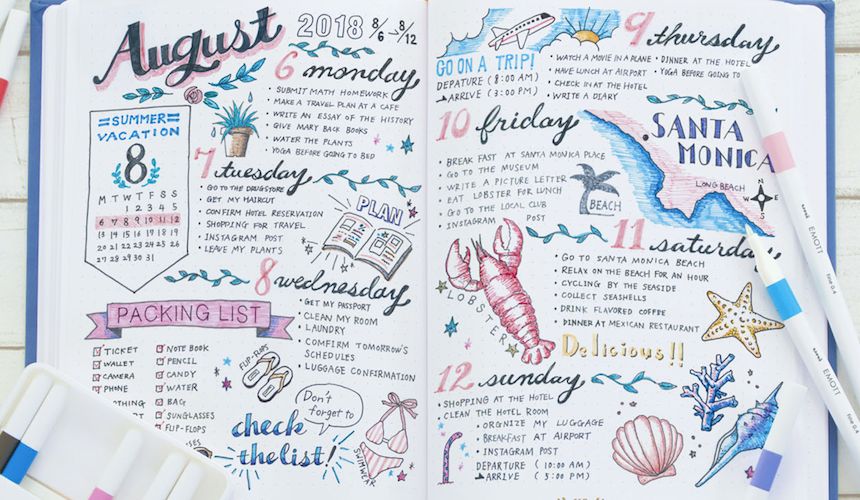 August
2018 8/6 → 8/12
SUMMER
VACATION
8
M T W T F S S
1 2 3 4 5
6 7 8 9 10 11 12
13 14 15 16 17 18 19
20 21 22 23 24 25 26
27 28 29 30 31
6 monday
• SUBMIT MATH HOMEWORK
• MAKE A TRAVEL PLAN AT A CAFE
• WRITE AN ESSAY OF THE HISTORY
• GIVE MARY BACK BOOKS
• WATER THE PLANTS
• YOGA BEFORE GOING TO BED
7 tuesday
• GO TO THE DRUGSTORE
• GET MY HAIRCUT
• CONFIRM HOTEL RESERVATION
• SHOPPING FOR TRAVEL
• INSTAGRAM POST
• LEAVE MY PLANTS
PLAN
8 wednesday
• GET MY PASSPORT
• CLEAN MY ROOM
• LAUNDRY
• COMFIRM TOMORROW'S
SCHEDULES
• LUGGAGE CONFIRMATION
PACKING LIST
TICKET
WALLET
CAMERA
PHONE
NOTE BOOK
PENCIL
CANDY
WATER
BAG
SUNGLASSES
FLIP-FLOPS
FLIP-FLOPS
Don't
forget to
check
the list!
SWIMWEAR
GO ON A TRIP!
DEPATURE (8:00 AM)
→ ARRIVE (3:00 PM)
9 thursday
• WATCH A MOVIE IN A PLANE
• HAVE LUNCH AT AIRPORT
• CHECK IN AT THE HOTEL
• WRITE A DIARY
• DINNER AT THE HOTEL
• YOGA BEFORE GOING TO
10 friday
• BREAK FAST AT SANTA MONICA PLACE
• GO TO THE MUSEUM
• WRITE A PICTURE LETTER
• EAT LOBSTER FOR LUNCH
• GO TO THE LOCAL CLUB
• INSTAGRAM POST
BEACH
SANTA
MONICA
LONG BEACH
W E
S
LOBSTER
11 saturday
• GO TO SANTA MONICA BEACH
• RELAX ON THE BEACH FOR AN HOUR
• CYCLING BY THE SEASIDE
• COLLECT SEASHELLS
• DRINK FLAVORED COFFEE
• DINNER AT MEXICAN RESTAURANT
Delicious!!
12 sunday
• SHOPPING AT THE HOTEL
• CLEAN THE HOTEL ROOM
• ORGNIZE MY LUGGAGE
• BREAKFAST AT AIRPORT
• INSTAGRAM POST
DEPARTURE (10:00 AM)
→ ARRIVE (5:00 PM)
EMOTT fine 0.4
EMOTT fine 0.4